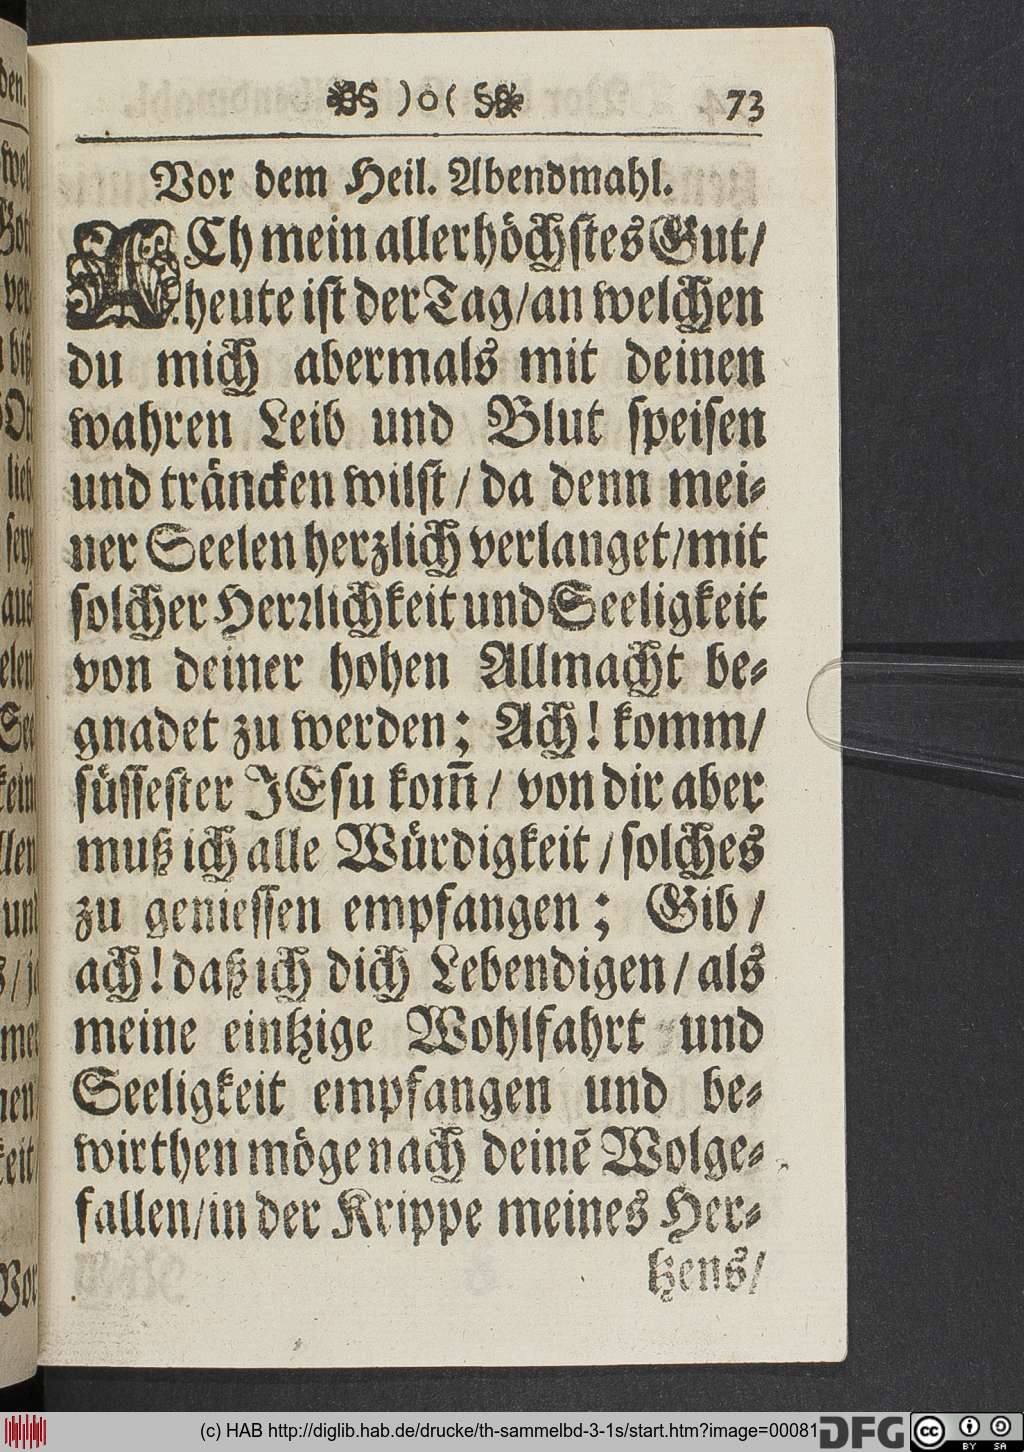 )o( 73
Vor dem Heil. Abendmahl.
ACh mein allerhöchstes Gut/
heute ist der Tag/an welchen
du mich abermals mit deinen
wahren Leib und Blut speisen
und träncken wilst/ da denn mei-
ner Seelen herzlich verlanget/mit
solcher Herrlichkeit und Seeligkeit
von deiner hohen Allmacht be-
gnadet zu werden; Ach! komm/
süssester JEsu kom̄/ von dir aber
muß ich alle Würdigkeit/solches
zu geniessen empfangen; Gib/
ach! daß ich dich Lebendigen/ als
meine eintzige Wohlfahrt und
Seeligkeit empfangen und be-
wirthen möge nach deinē Wolge-
fallen/in der Krippe meines Her-
tzens/
(c) HAB http://diglib.hab.de/drucke/th-sammelbd-3-1s/start.htm?image=00081
DFG
cc BY SA